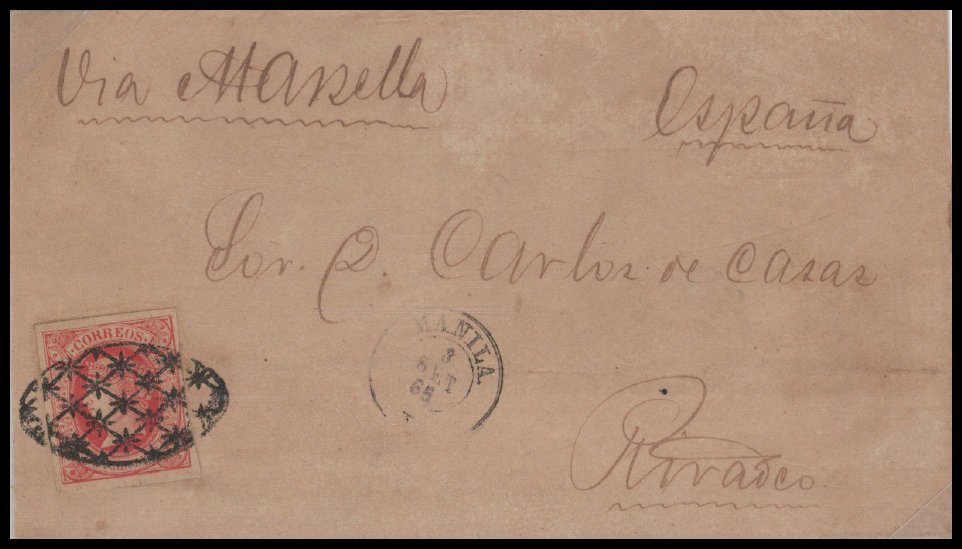 Via Marsella
España
Sor. D. Carlos de Casas
CORREOS
MANILA
3
SET
Rivadeo